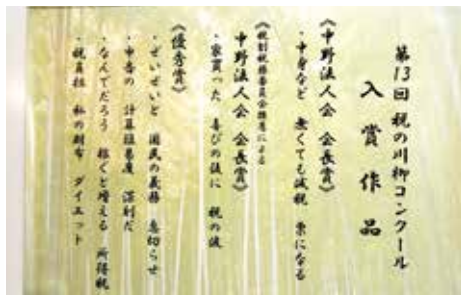 第13回 税の川柳コンクール
入賞作品
《中野法人会 会長賞》
・中身など 無くても減税 票になる
《税制税務委員会推薦による
中野法人会 会長賞》
・家買った 喜びの後に 税の波
《優秀賞》
・ぜいぜいと 国民の義務 息切らせ
・中吾の 計算難易度 深刻だ
・なんでだろう 稼ぐと増える 所得税
・税負担 私の財布 ダイエット